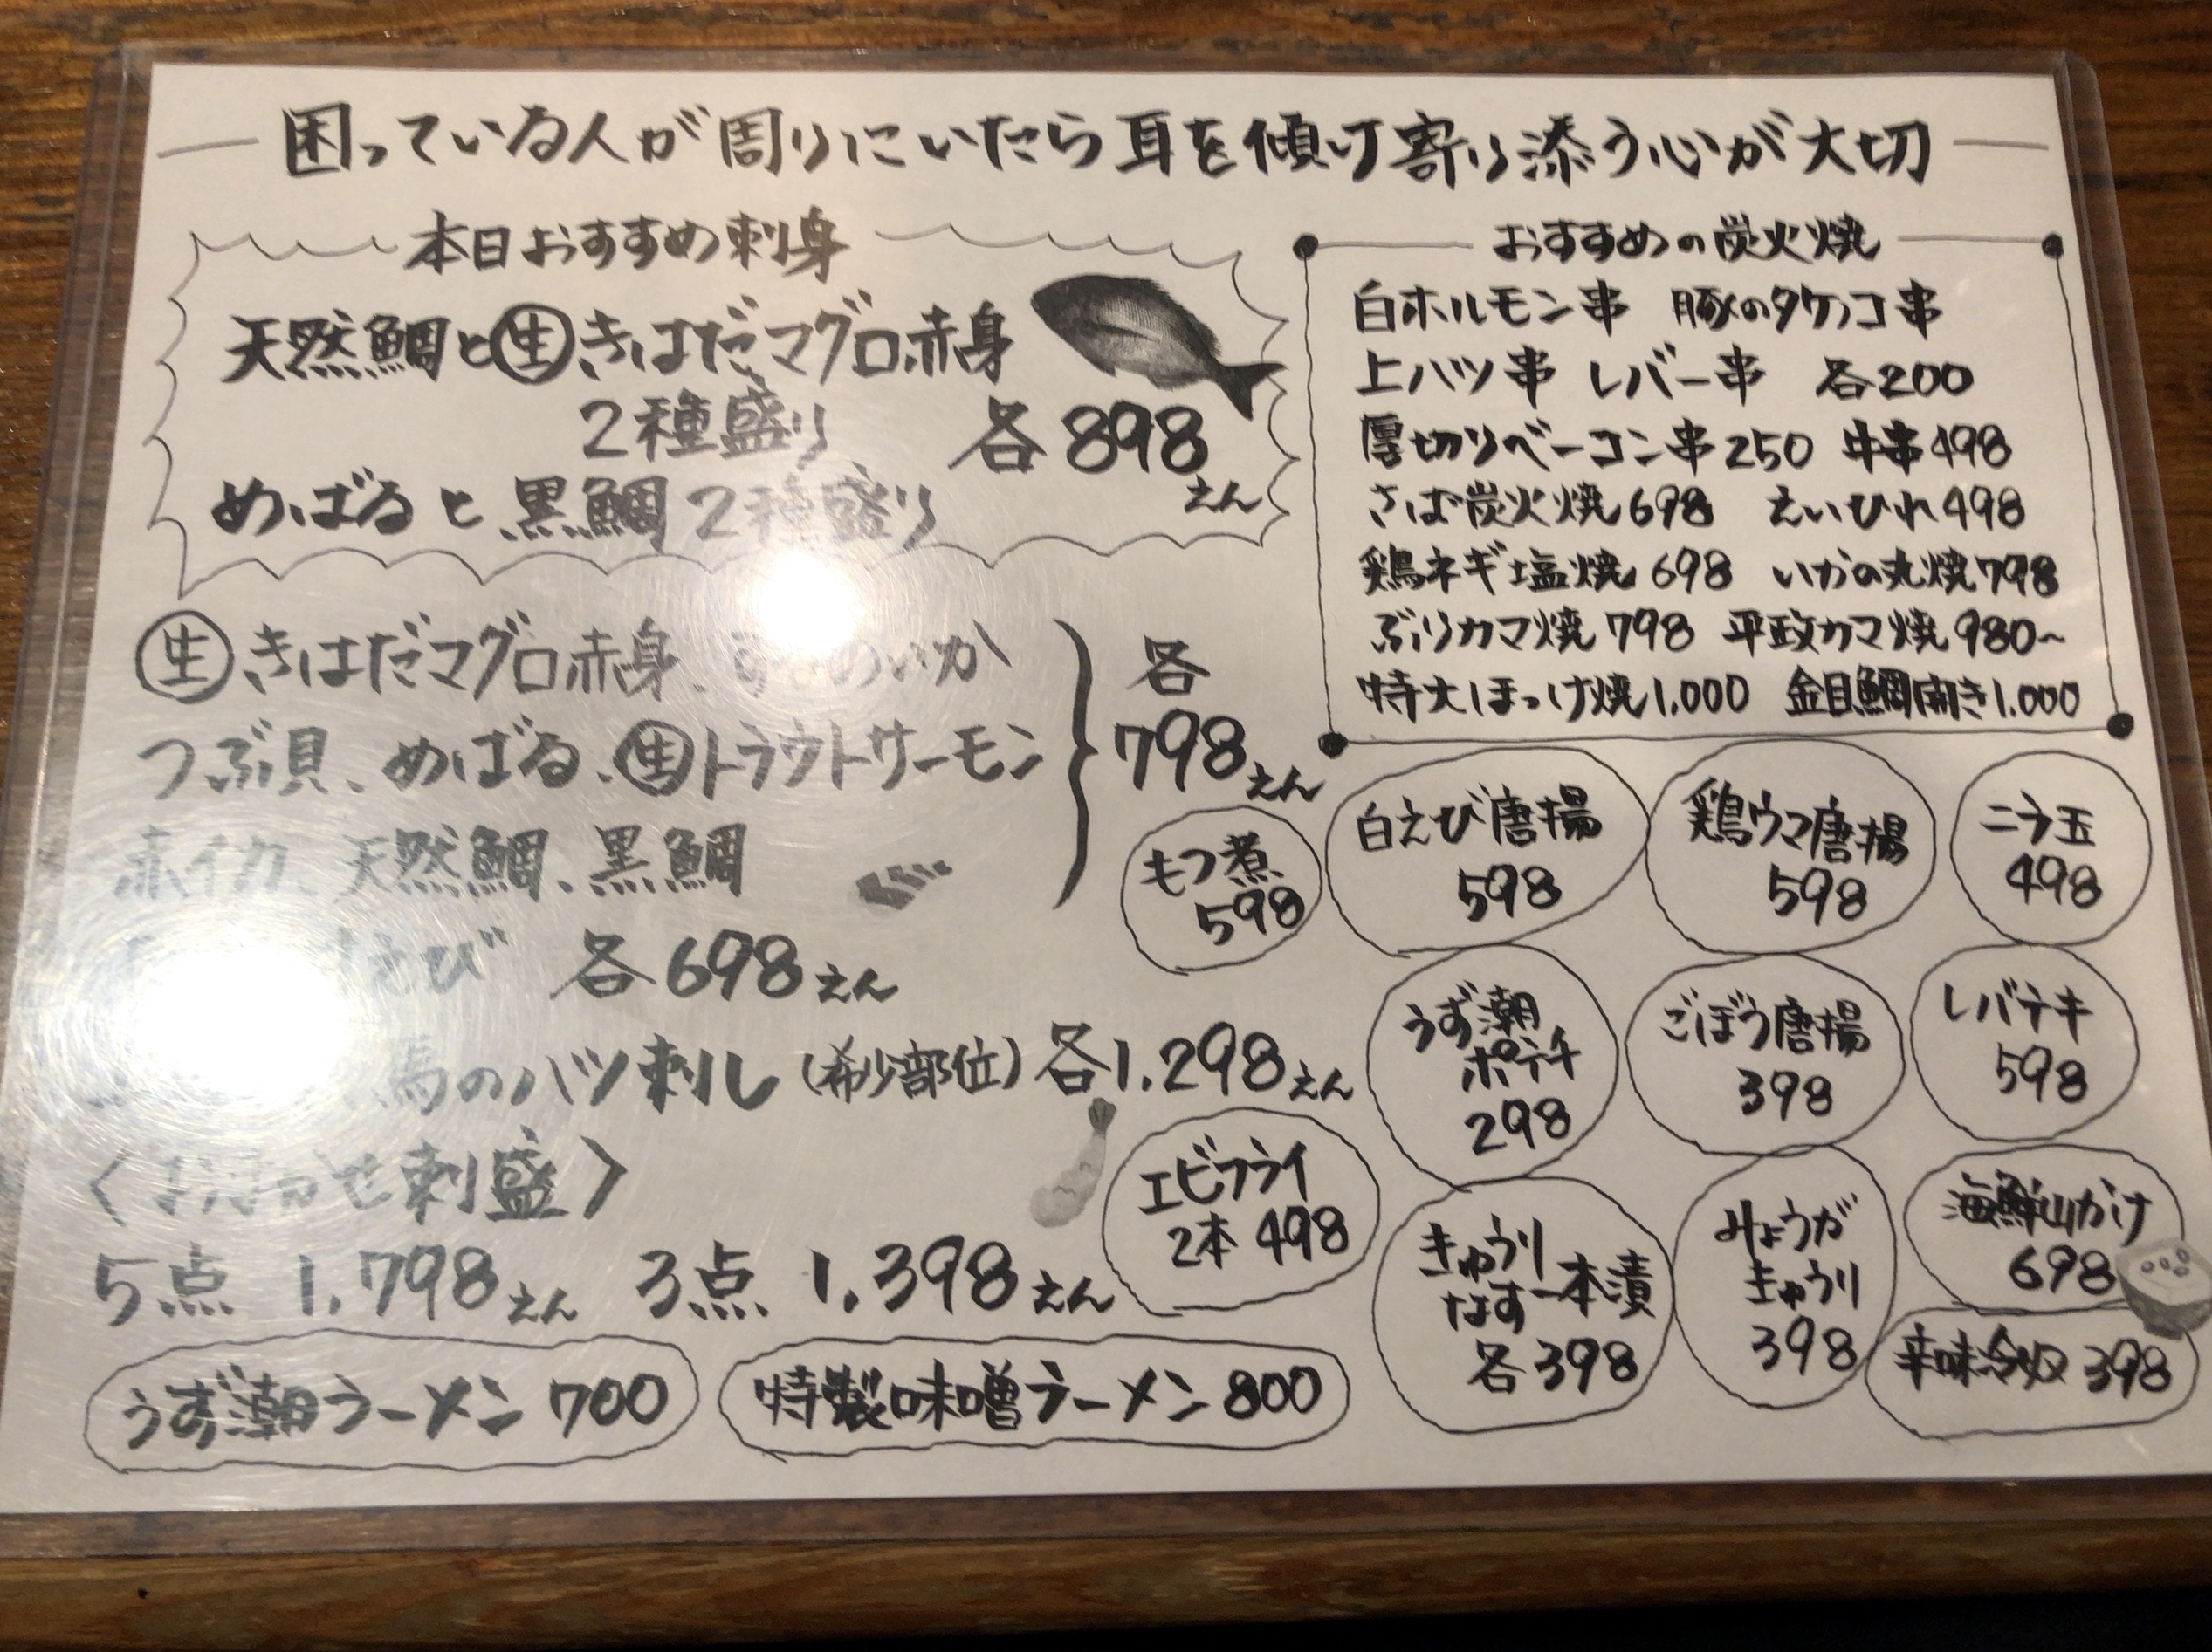 困っている人が周りにいたら耳を傾け寄り添う心が大切
本日おすすめ刺身
天然鯛と㊤きはだマグロ赤身
2種盛り 各898えん
めばると黒鯛2種盛り
生 きはだマグロ赤身、するめいか
つぶ貝、めばる、生トラウトサーモン
赤イカ、天然鯛、黒鯛
各798えん
えび 各698えん
馬のハツ刺し(希少部位) 各1,298えん
〈おまかせ刺盛〉
5点 1,798えん 3点 1,398えん
うず潮ラーメン 700
特製味噌ラーメン 800
おすすめの炭火焼
白ホルモン串 豚のタケノコ串
上ハツ串 レバー串 各200
厚切りベーコン串250 牛串498
さば炭火焼698 えいひれ498
鶏ネギ塩焼698 いかの丸焼798
ぶりカマ焼798 平政カマ焼980~
特大ほっけ焼1,000 金目鯛開き1,000
もつ煮
598
白えび唐揚
598
鶏ウマ唐揚
598
ニラ玉
498
うず潮
ポテチ
298
ごぼう唐揚
398
レバテキ
598
エビフライ
2本 498
きゅうり
なす
一本漬
各398
みょうが
きゅうり
398
海鮮山かけ
698
辛味冷奴 398